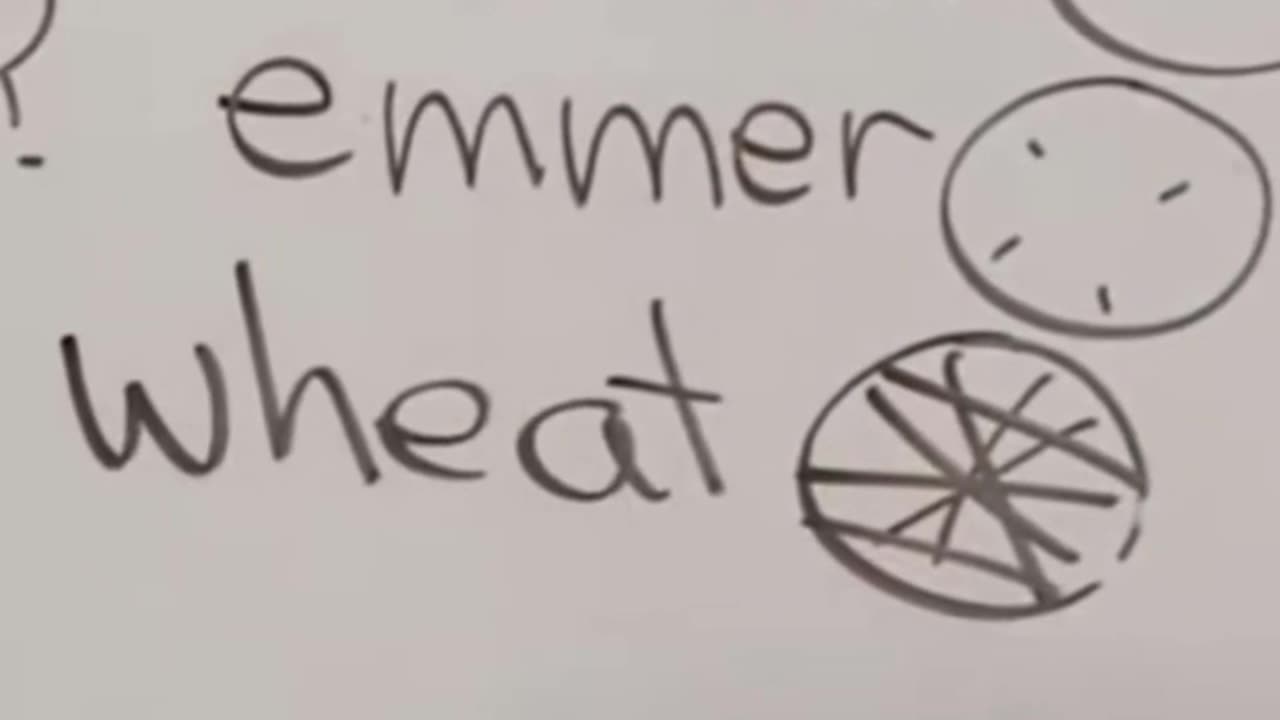 ?
emmer
wheat